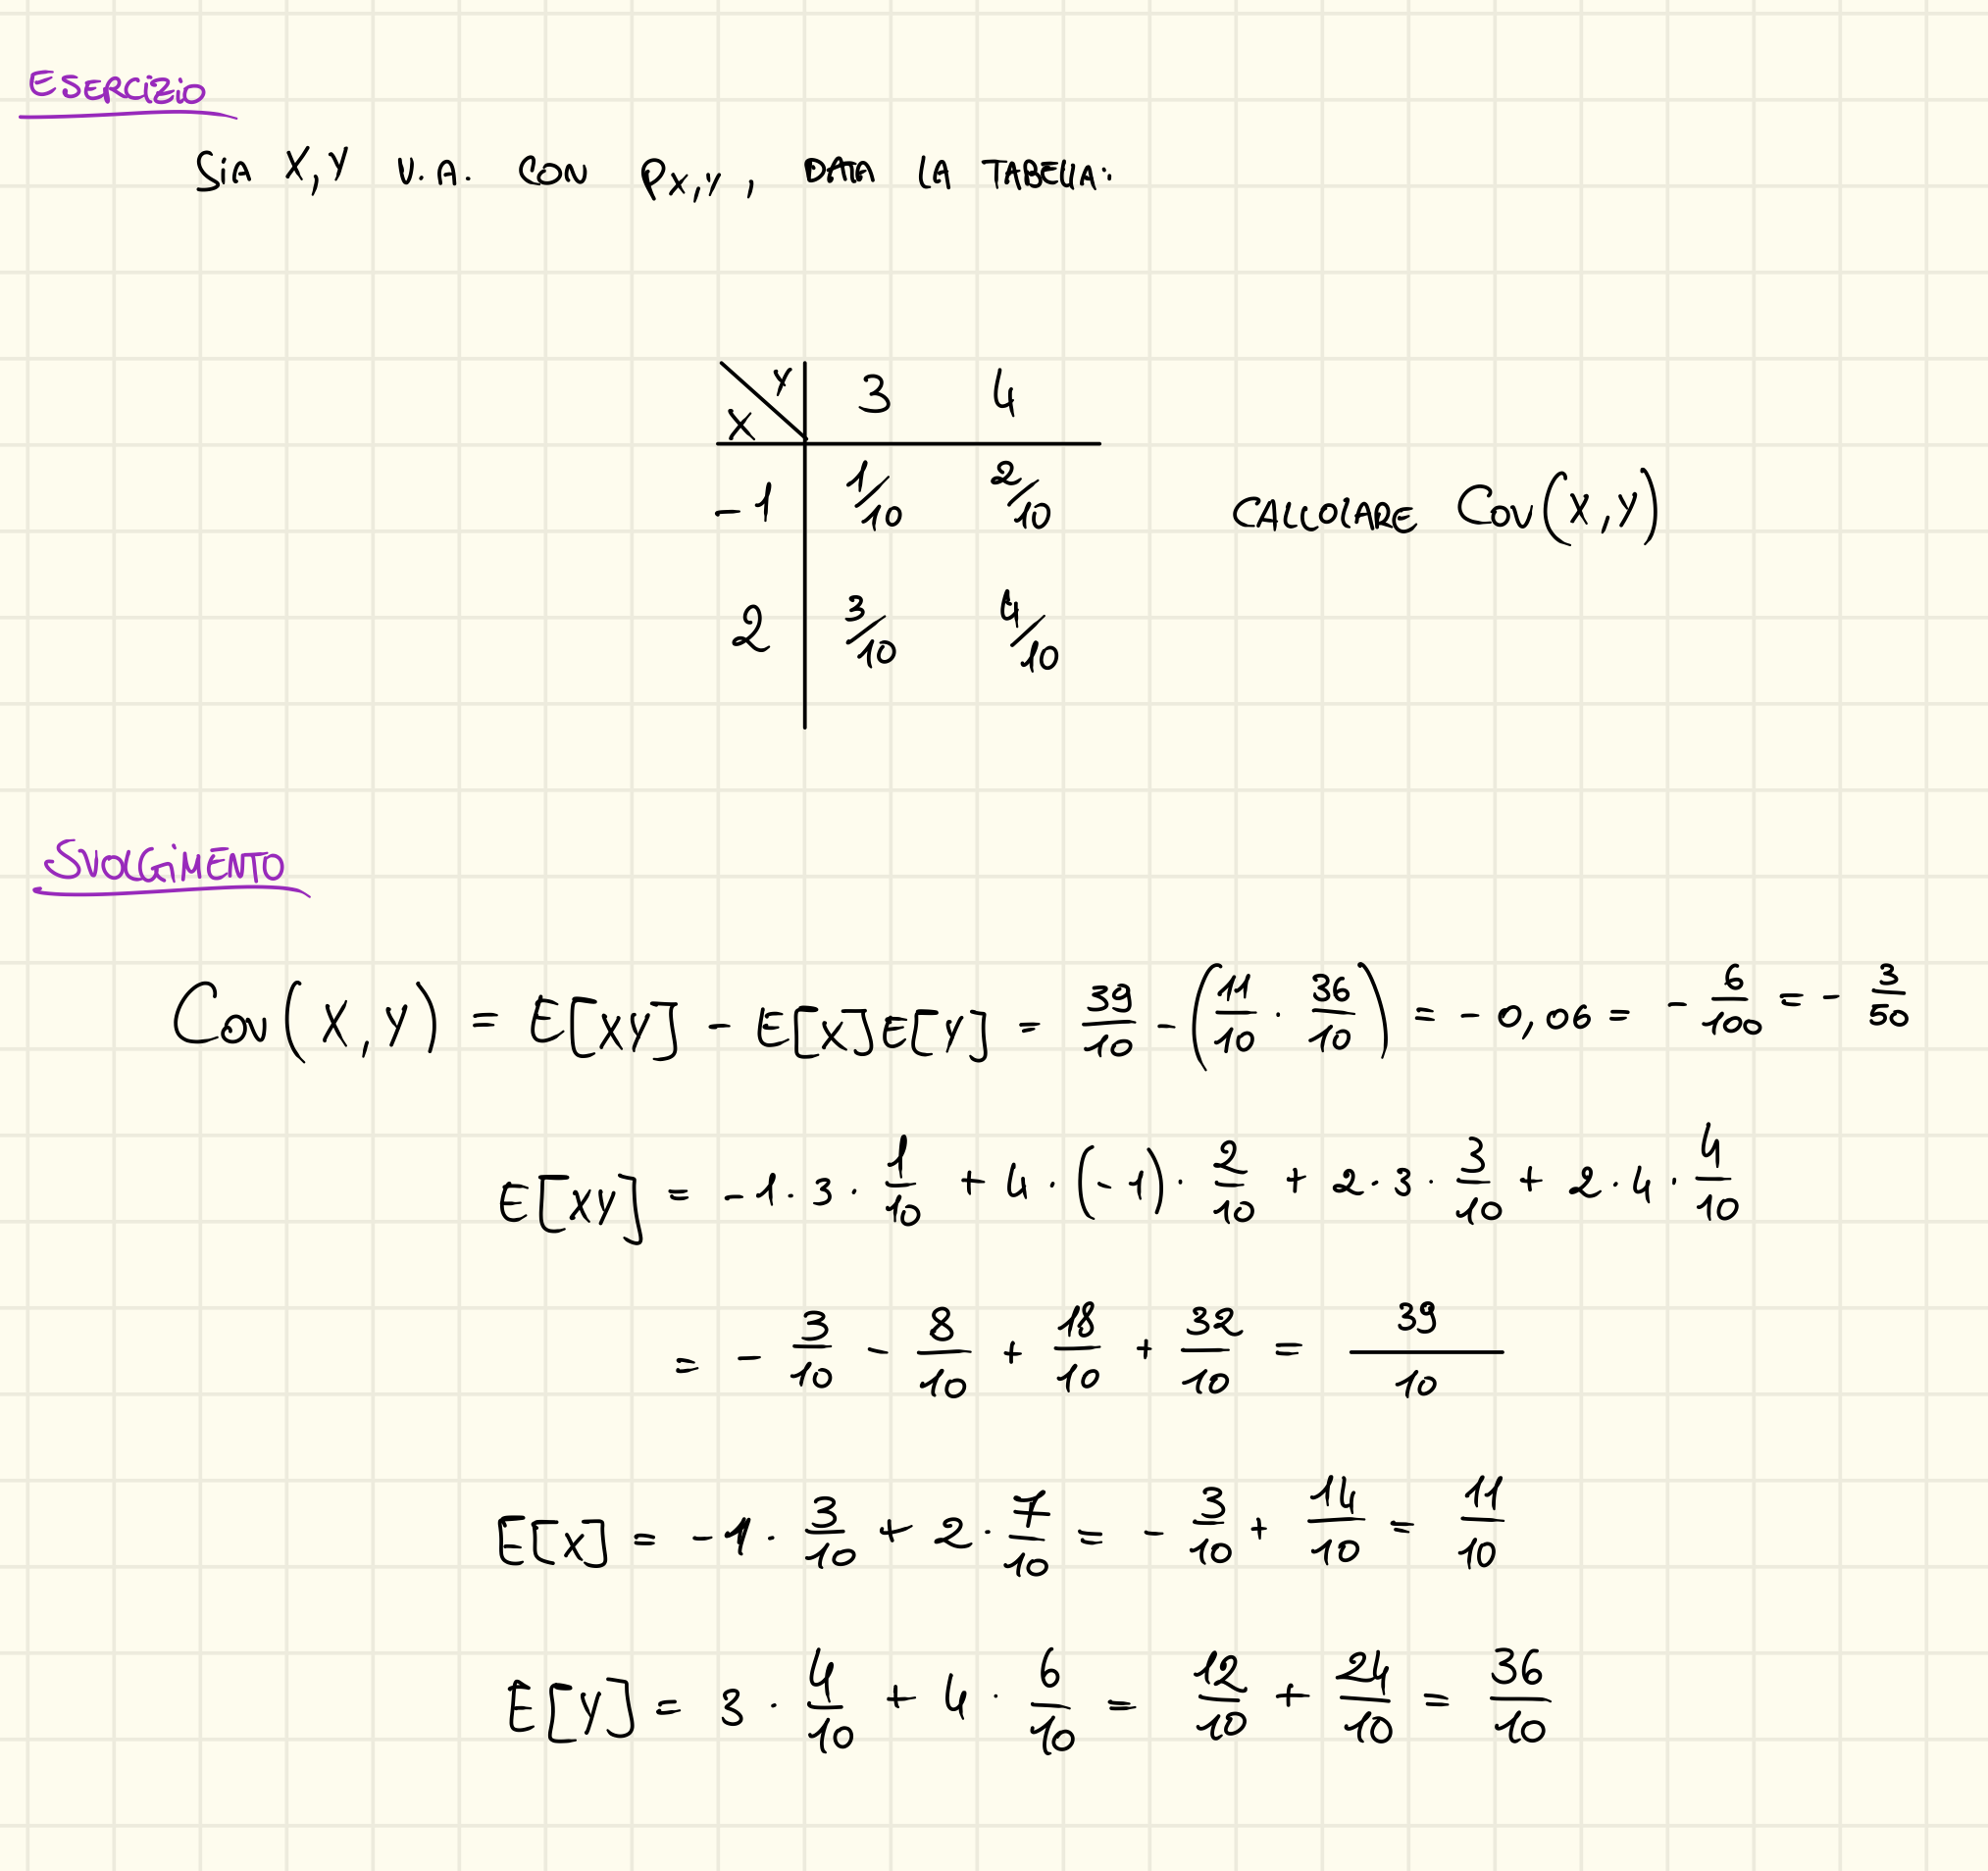 ESERCIZIO
SIA X,Y V.A. CON PX,Y, DATA LA TABELLA:
X Y 3 4
-1 1/10 2/10
CALCOLARE Cov(X,Y)
2 3/10 4/10
SVOLGIMENTO
Cov(X,Y) = E[XY] - E[X]E[Y] = 39/10 - (11/10 · 36/10) = -0,06 = - 6/100 = - 3/50
E[XY] = -1·3· 1/10 + 4·(-1)· 2/10 + 2·3· 3/10 + 2·4· 4/10
= - 3/10 - 8/10 + 18/10 + 32/10 = 39/10
E[X] = -1· 3/10 + 2· 7/10 = - 3/10 + 14/10 = 11/10
E[Y] = 3 · 4/10 + 4 · 6/10 = 12/10 + 24/10 = 36/10